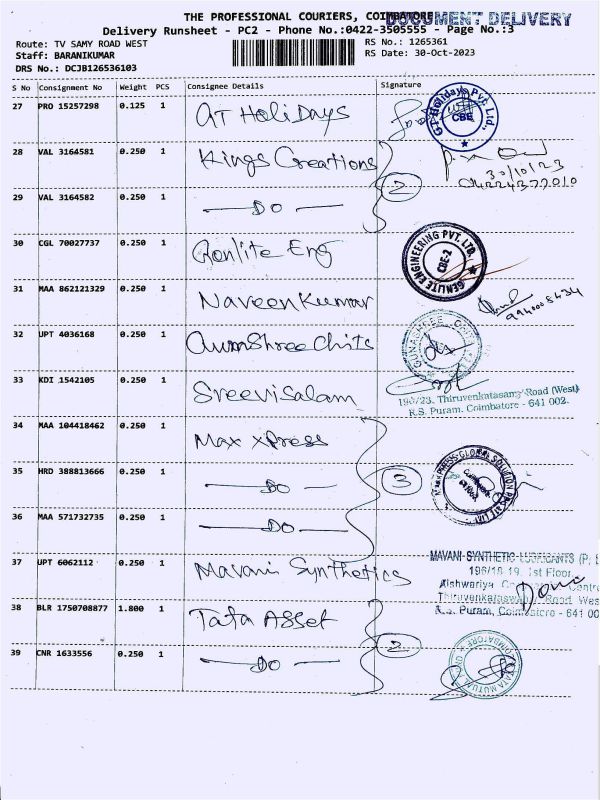 THE PROFESSIONAL COURIERS, COIMBATORE
DOCUMENT DELIVERY
Delivery Runsheet - PC2 - Phone No.:0422-3505555 - Page No.:3
Route: TV SAMY ROAD WEST
RS No.: 1265361
Staff: BARANIKUMAR
RS Date: 30-Oct-2023
DRS No.: DCJB126536103
S No Consignment No Weight PCS Consignee Details Signature
27 PRO 15257298 0.125 1 GT HoliDays
GT Holidays Pvt. Ltd.,
CBE
28 VAL 3164581 0.250 1 Kings Creations
2
30/10/23
29 VAL 3164582 0.250 1 DO
30 CGL 70027737 0.250 1 Genlite Eng
GENLITE ENGINEERING PVT. LTD.
CBE-2
31 MAA 862121329 0.250 1 Naveen Kumar
32 UPT 4036168 0.250 1 GunaShree Chits
GUNASHREE
33 KDI 1542105 0.250 1 Sreevisalam
196/23, Thiruvenkatasamy Road (West)
R.S. Puram, Coimbatore - 641 002.
34 MAA 104418462 0.250 1 Max xpress
3
35 HRD 388813666 0.250 1 DO
36 MAA 571732735 0.250 1 DO
37 UPT 6062112 0.250 1 Mavani Synthetics
MAVANI SYNTHETIC LUBRICANTS (P)
1st Floor,
Aishwariya
Road Wes
R.S. Puram, Coimbatore - 641 00
38 BLR 1750708877 1.800 1 Tata Asset
2
39 CNR 1633556 0.250 1 DO
TATA MUTUAL
COIMBATORE